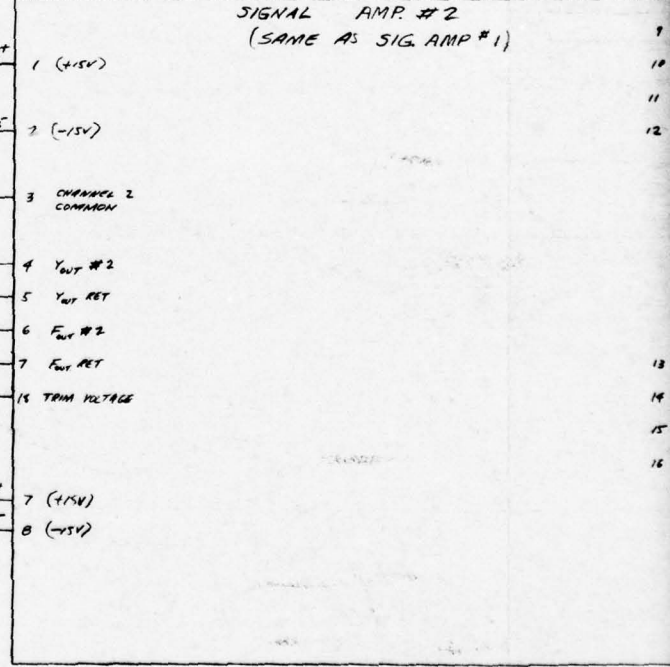 SIGNAL AMP. #2
(SAME AS SIG. AMP #1)
+
1 (+15V)
2 (-15V)
3 CHANNEL 2
COMMON
4 YOUT #2
5 YOUT RET
6 FOUT #2
7 FOUT RET
18 TRIM VOLTAGE
7 (+15V)
8 (-15V)
9
10
11
12
13
14
15
16